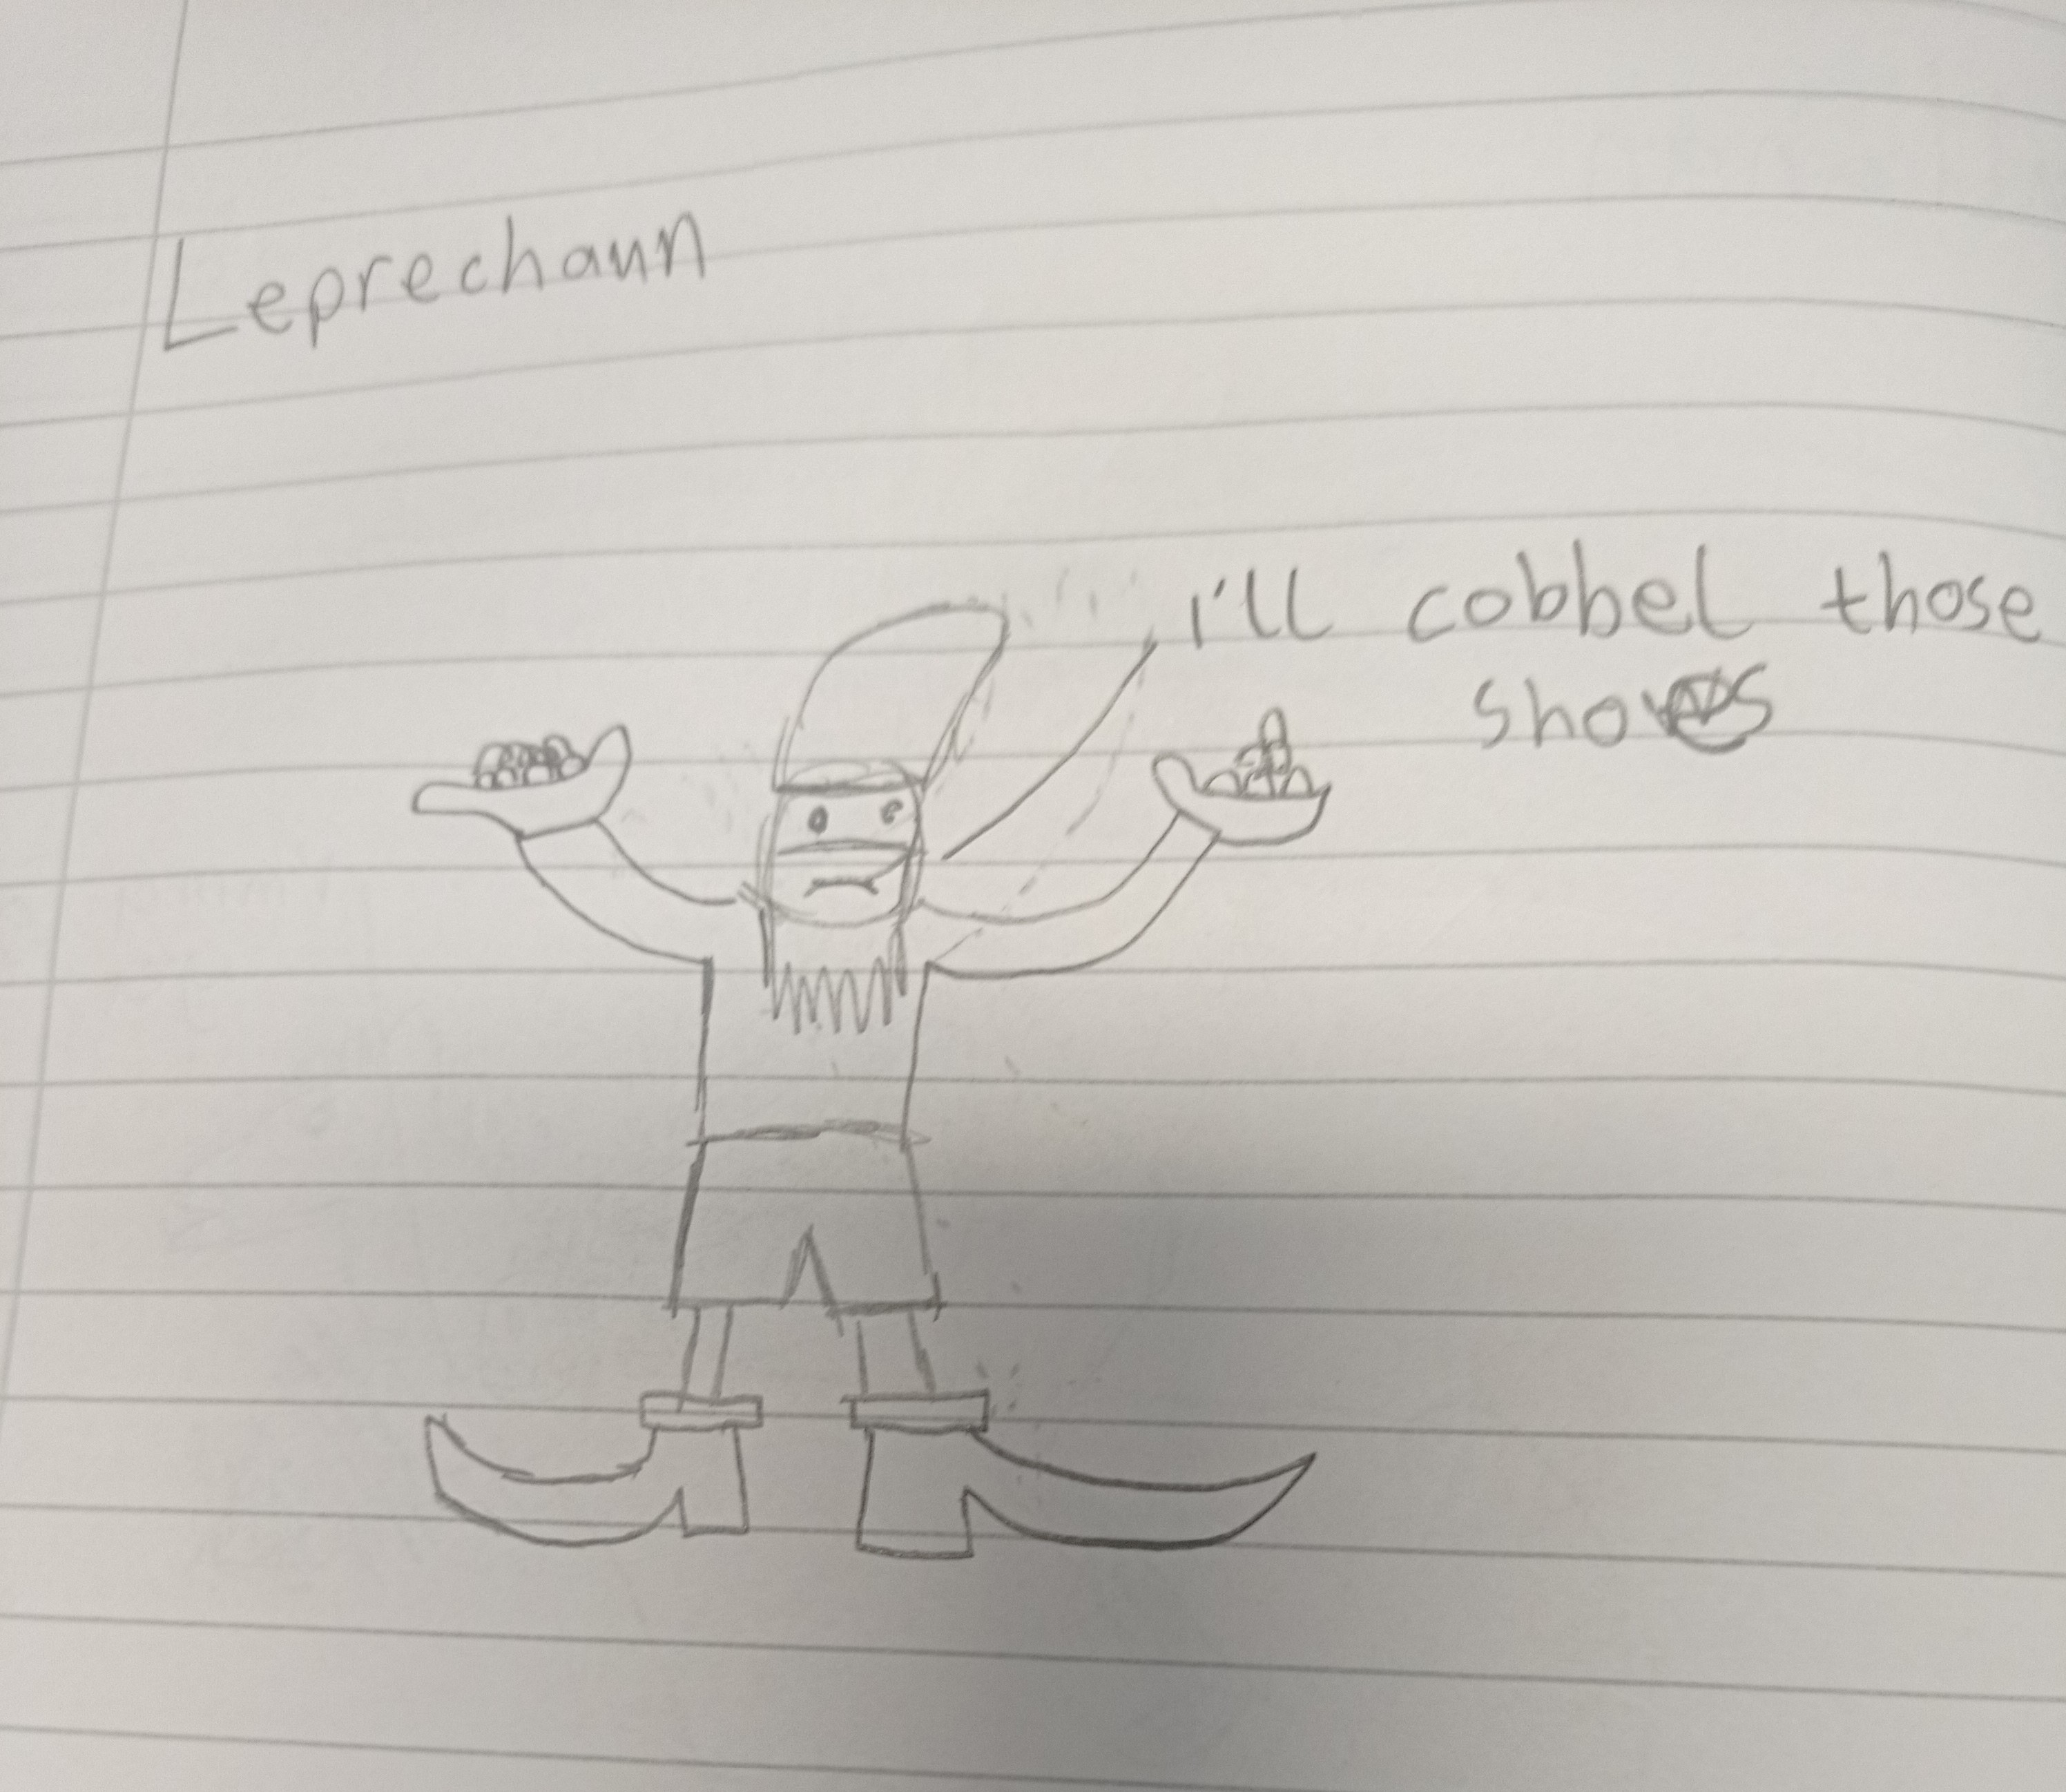 Leprechaun
I'll cobbel those
shoes